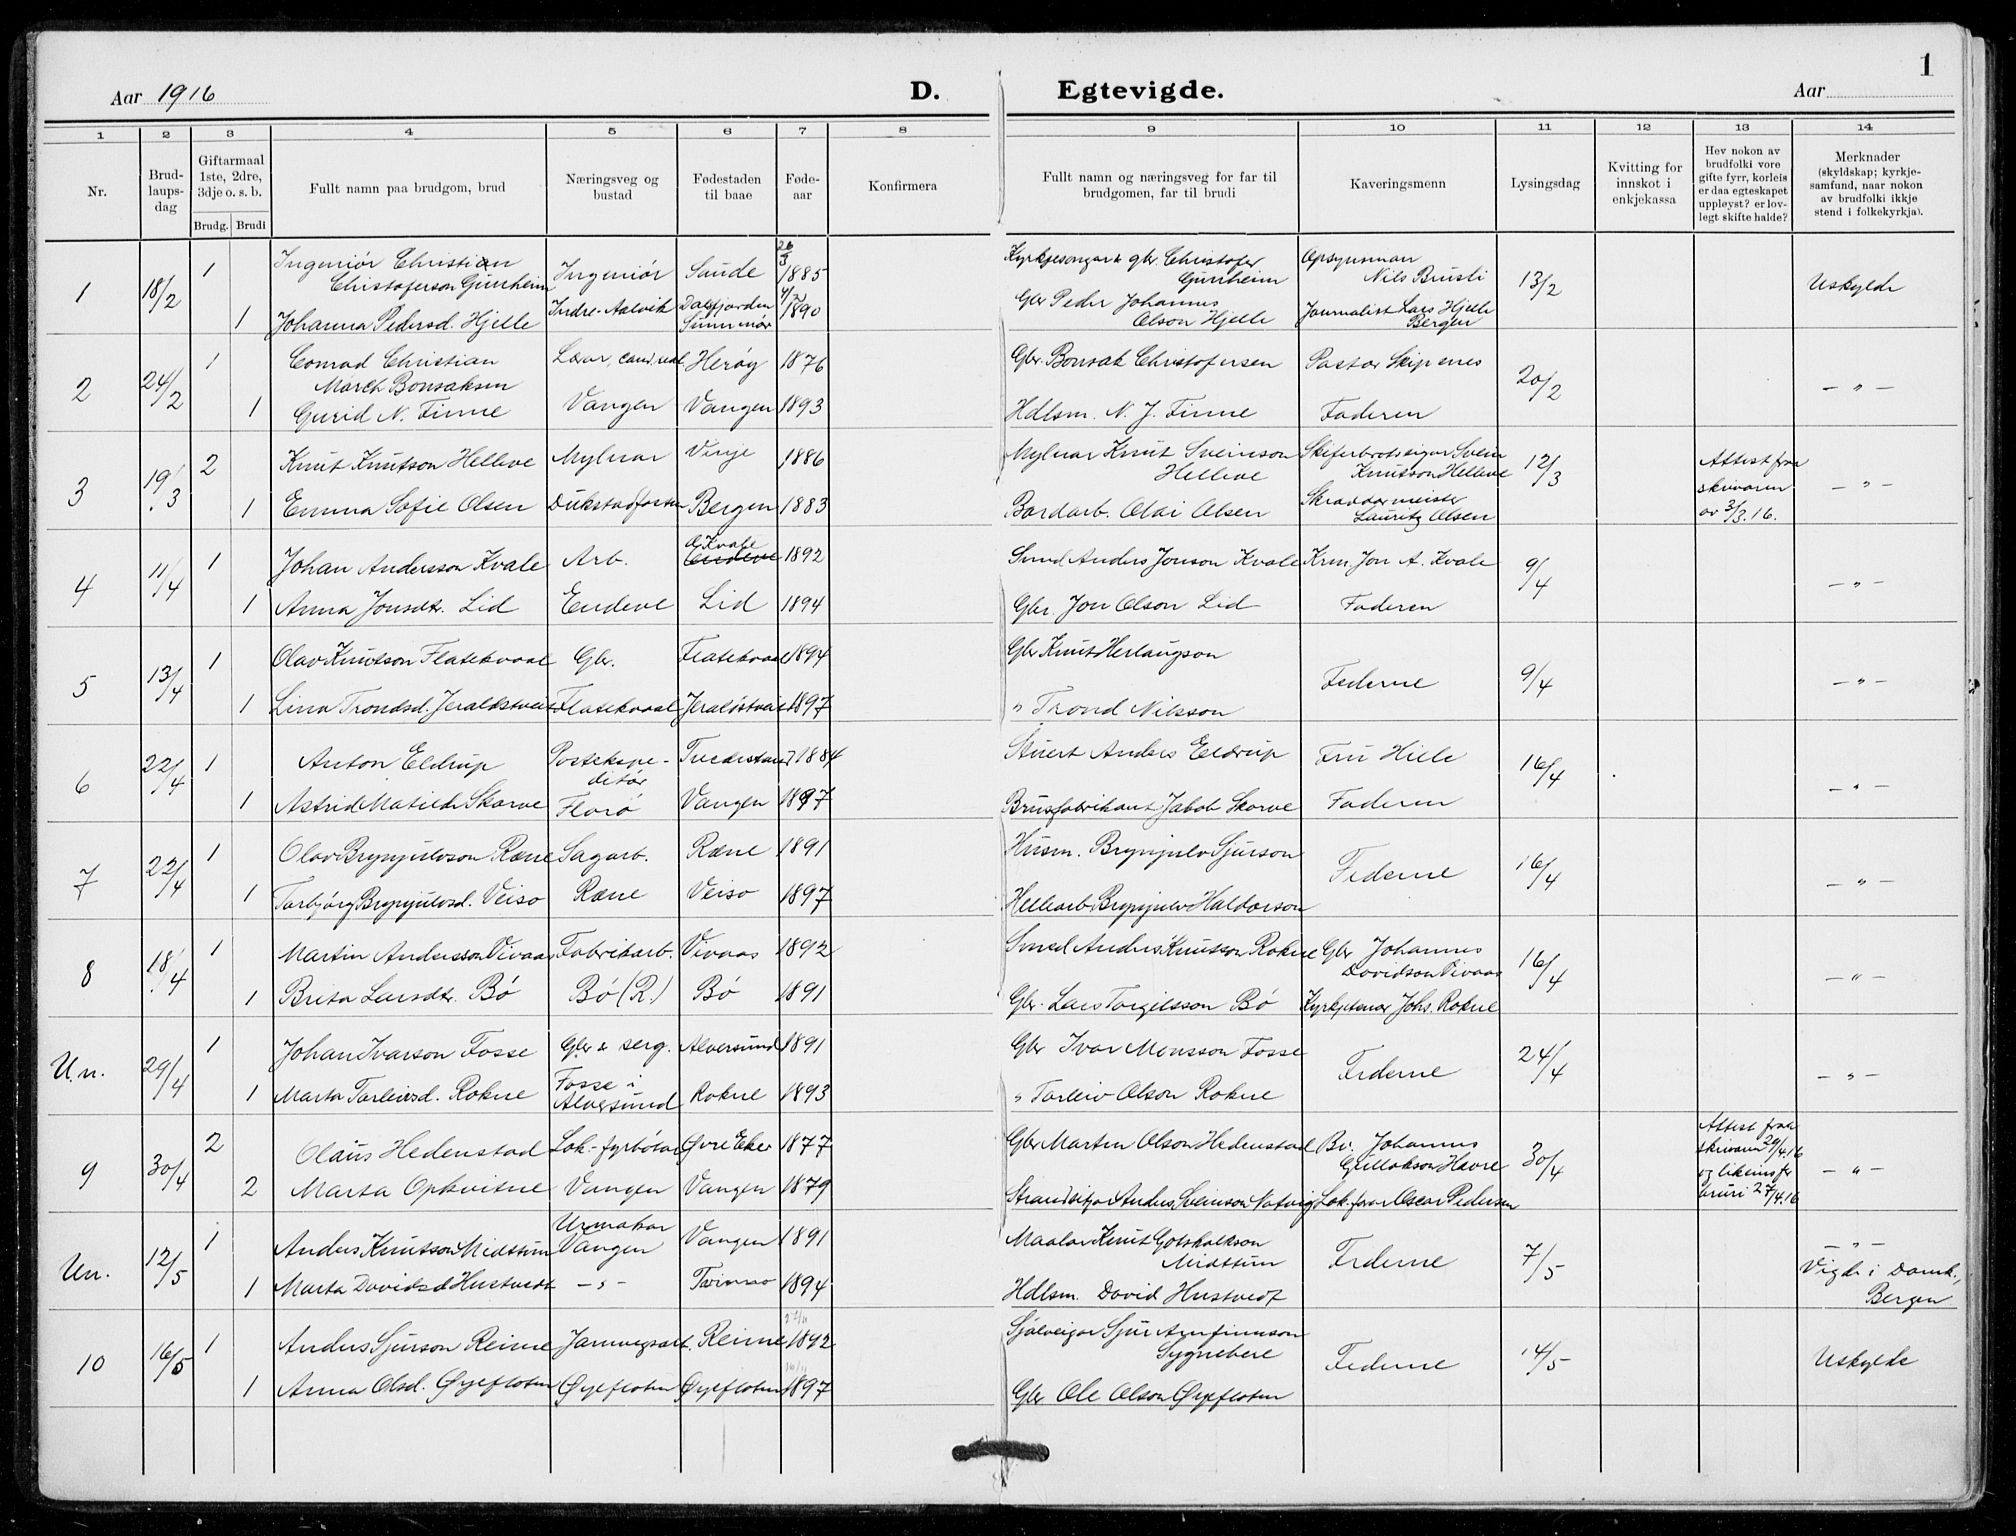 1
Aar 1916 D. Egtevigde. Aar
1 2 3 4 5 6 7 8 9 10 11 12 13 14
Nr.
Brud-
laups-
dag
Giftarmaal
1ste, 2dre,
3dje o. s. b.
Brudg. Brudi
Fullt namn paa brudgom, brud
Næringsveg og
bustad
Fødestaden
til baae
Føde-
aar
Konfirmera
Fullt namn og næringsveg for far til
brudgomen, far til brudi
Kaveringsmenn
Lysingsdag
Kvitting for
innskot i
enkjekassa
Hev nokon av
brudfolki vore
gifte fyrr, korleis
er daa egteskapet
uppløyst? er lov-
legt skifte halde?
Merknader
(skyldskap; kyrkje-
samfund, naar nokon
av brudfolki ikkje
stend i folkekyrkja).
1 18/2 1 Ingeniör Christian
Christoferson Gjurheim Ingeniör Saude 26/3 1885
Kyrkjesongar & gbr. Christofer
Gjurheim Opsynsman
Nils Brusli 13/2 Uskylde
1 Johanna Pedersd. Hjelle Indre-Aalvik Dalsfjorden
Sunnmör 4/7 1890
Gbr Peder Johannes
Olson Hjelle Journalist Lars Hjelle
Bergen
2 24/2 1 Conrad Christian
March Bonsaksen Lærar, cand. real Herøy 1876
Gbr. Bonsak Christofersen Pastor Skipenes 20/2 — " —
1 Gurid N. Finne Vangen Vangen 1893
Hdlsm. N. J. Finne Faderen
3 19/3 2 Knut Knutson Helleve Mylnar Vinje 1886
Mylnar Knut Sveinson
Helleve Skiferbrotseigar Svein
Knutson Helleve 12/3 Attest fraa
skrivaren
av 3/3.16. — " —
1 Emma Sofie Olsen Dukstadfossen Bergen 1883
Bordarb. Olai Olsen Skræddarmeister
Lauritz Olsen
4 11/4 1 Johan Andersson Kvale Arb. Kvale 1892
Smed Anders Jonson Kvale Krm. Jon A. Kvale 9/4 — " —
1 Anna Jonsdtr. Lid Endeve Lid 1894
Gbr. Jon Olson Lid Faderen
5 13/4 1 Olav Knutson Flatekvaal Gbr. Flatekvaal 1894
Gbr Knut Herlaugson Federne 9/4 — " —
1 Lina Trondsd. Jeraldstveit Flatekvaal Jeraldstveit 1897
" Trond Nilsson
6 22/4 1 Anton Eldrup Postekspe-
ditör Tvedestrand 1884
Stuert Anders Eldrup Fru Hille 16/4 — " —
1 Astrid Matilde Skorve Florö Vangen 1897
Brusfabrikant Jakob Skorve Faderen
7 22/4 1 Olav Brynjulvson Ræne Sagarb. Ræne 1891
Husm. Brynjulv Sjurson Federne 16/4 — " —
1 Torbjørg Brynjulvsd. Veiso Ræne Veiso 1897
Hellearb Brynjulv Haldorson
8 18/4 1 Martin Andersson Vivaas Fabrikarb. Vivaas 1892
Smed Anders Knutson Rokne Gbr Johannes
Davidson Vivaas 16/4 — " —
1 Brita Larsdtr. Bö Bö (R.) Bö 1891
Gbr. Lars Torgilsson Bö Kyrkjetenar Johs. Rokne
U.n. 29/4 1 Johan Ivarson Fosse Gbr & serg. Alversund 1891
Gbr Ivar Monsson Fosse Federne 24/4 — " —
1 Marta Torleivsd. Rokne Fosse i
Alversund Rokne 1893
" Torleiv Olson Rokne
9 30/4 2 Olaus Hedenstad Lok-fyrbötar Øvre Eker 1877
Gbr Martin Olson Hedenstad Bv. Johannes
Havre 30/4 Attest fraa
skrivaren 29/4.16
og likeins for
bruri 27/4.16 — " —
2 Marta Opkvitne Vangen Vangen 1879
Strandsitjar Anders Sveinson Natvig Lok-forar Oscar Pedersen
Un. 12/5 1 Anders Knutson Midttun Urmakar
Vangen Vangen 1891
Maalar Knut Gotskalkson
Midttun Federne 7/5 — " —
Vigde i Domk.,
Bergen
1 Marta Davidsd Hustvedt — " — Tvinno 1894
Hdlsm. David Hustvedt
10 16/5 1 Anders Sjurson Reime Jarnvegsarb. Reime 27/11 1892
Sjölveigar Sjur Arnfinnson
Sygnebere Federne 14/5 Uskylde
1 Anna Olsd. Øyefloten Øyefloten Øyefloten 1897
Gbr Ole Olson Øyefloten